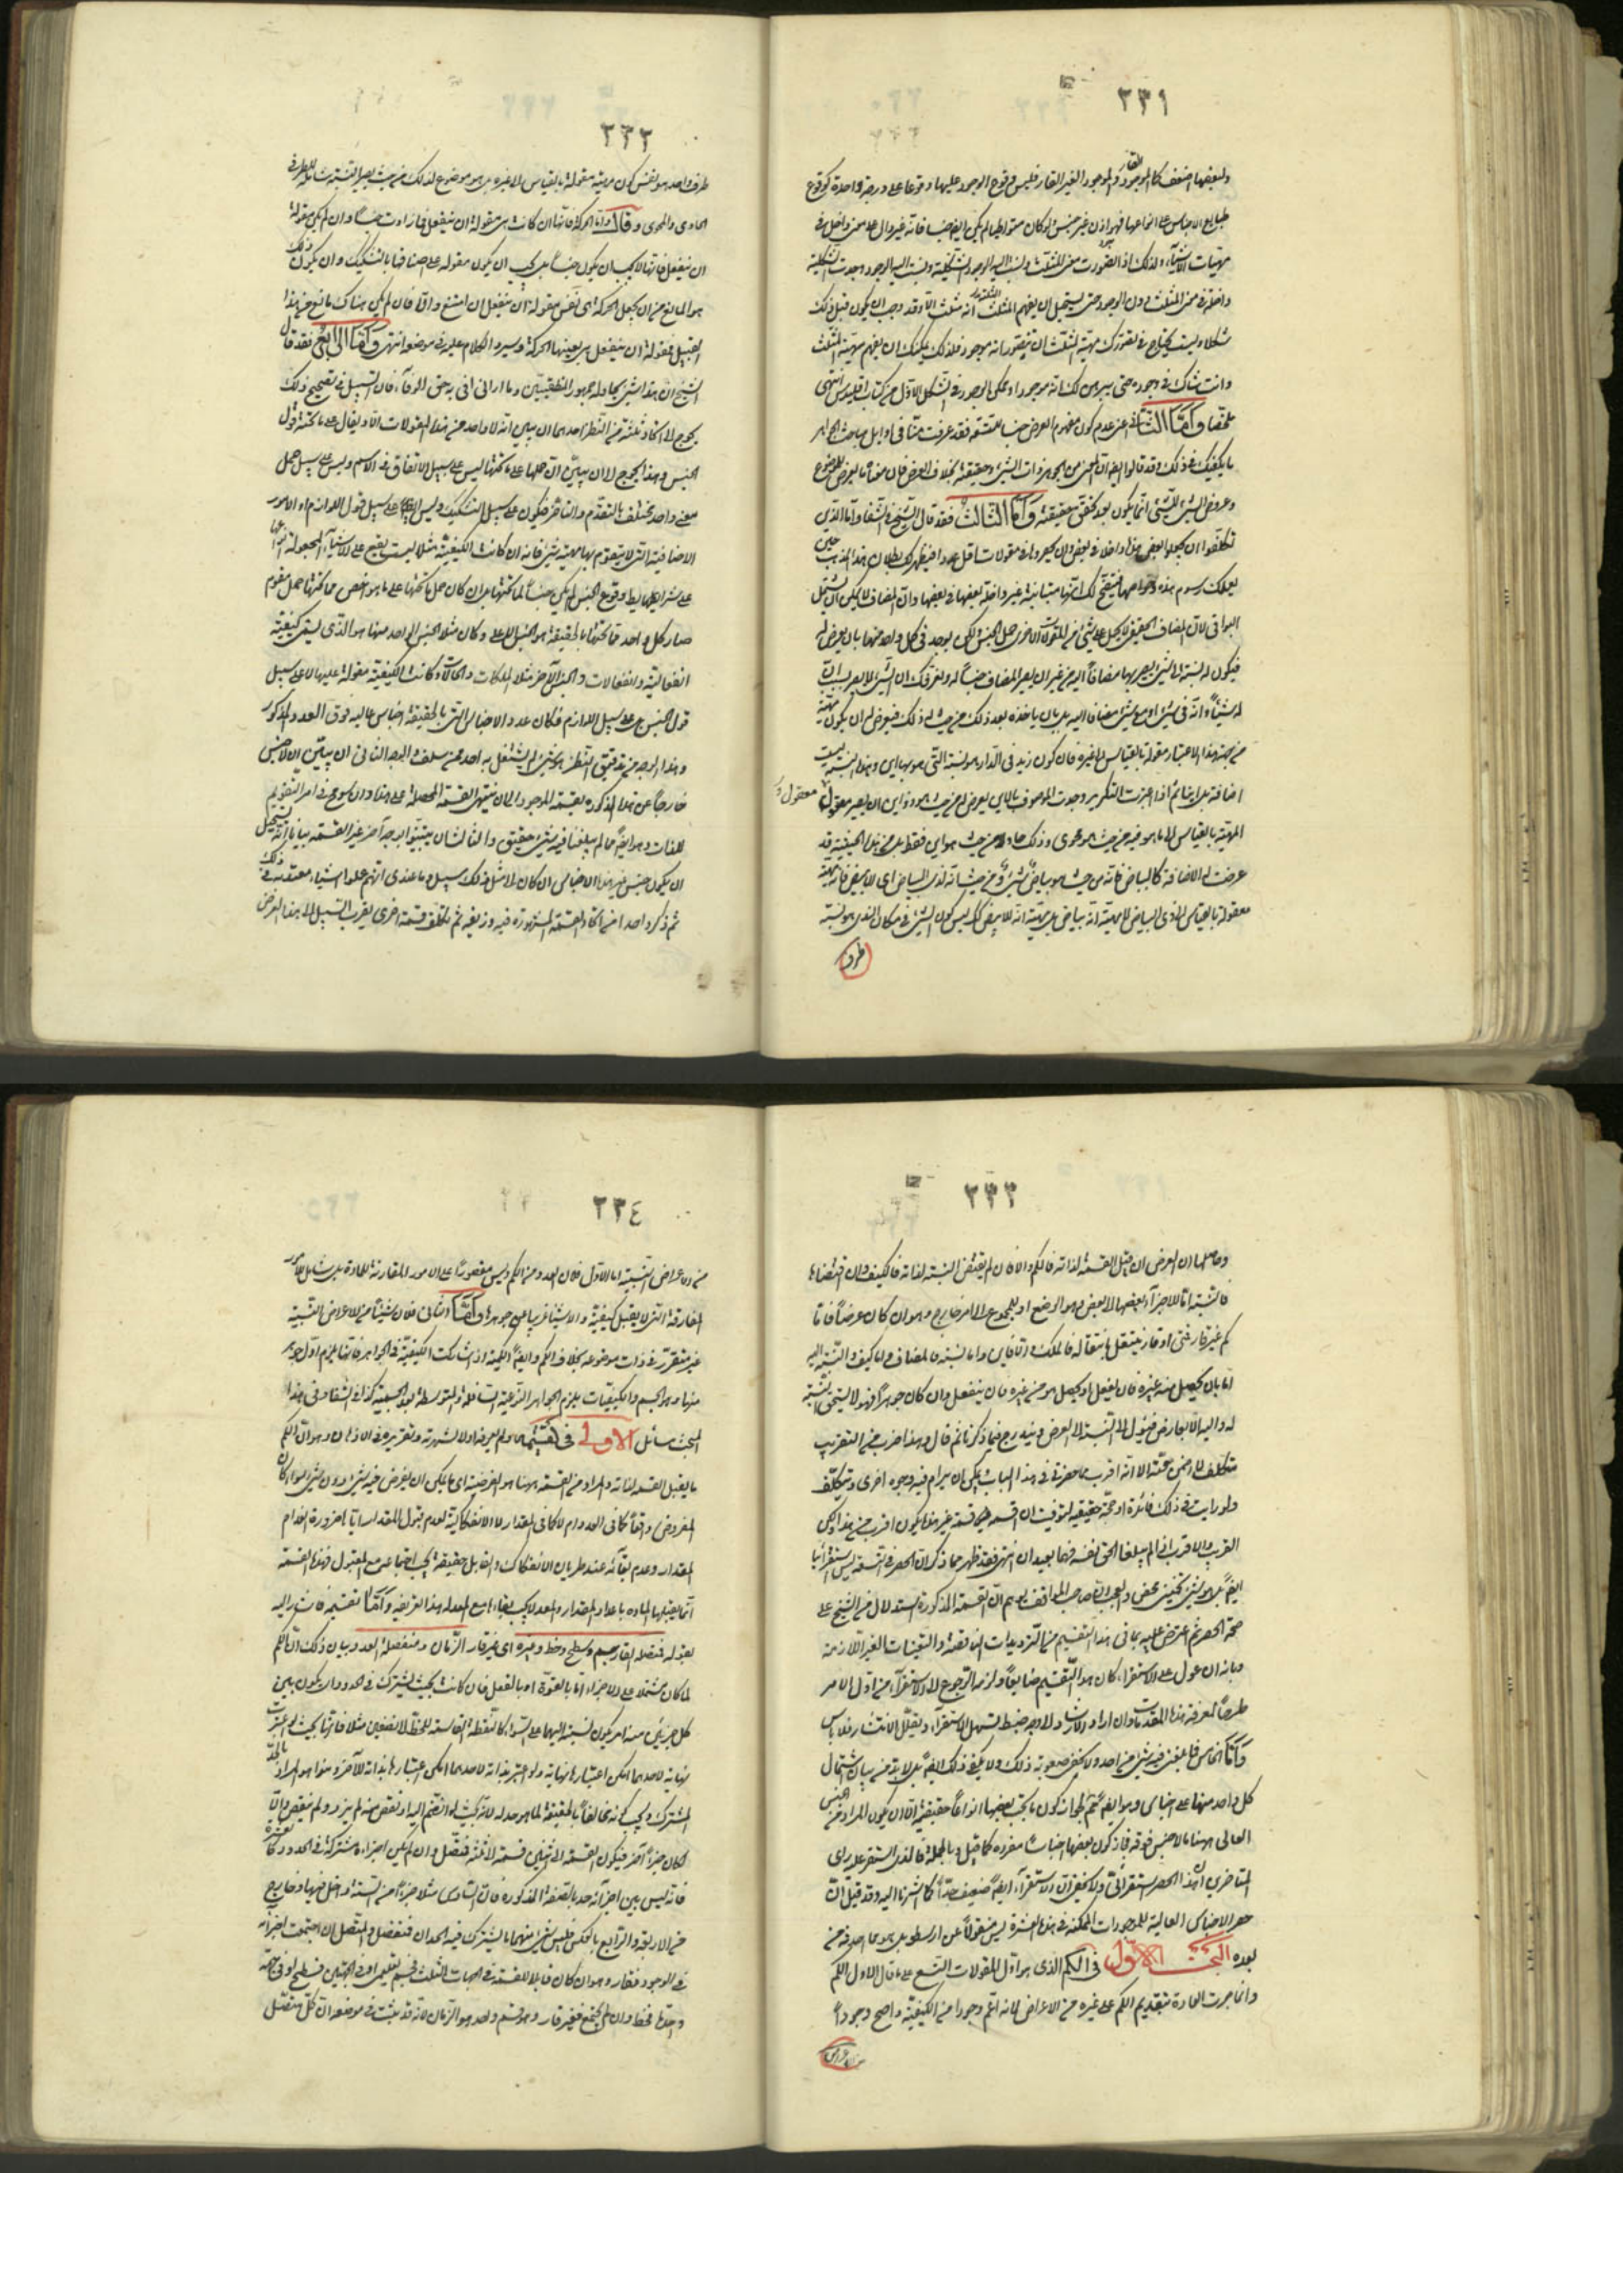 ٢٣١
ولبعضها اضعف كالموجود القار والموجود الغير القار فليس وقوع الوجود عليها وقوعا على درجة واحدة كوقوع
طبايع الاجناس على انواعها فهو اذن غير جنس ولو كان متواطيا لم يكن ايضا جنسا فانه غير دال على معنى داخل في
مهيات الاشياء ولذلك اذا تصورت معنى المثلث ونسبت اليه الشكلية ونسبت اليه الوجود وجدت الشكلية
داخلة في معنى المثلث دون الوجود حتى يستحيل ان يفهم المثلث انه مثلث الا وقد وجب ان يكون قبل ذلك
شكلا وليس يحتاج في تصورك مهية المثلث ان تتصور انه موجود فلذلك يمكنك ان يفهم مهية المثلث
وانت شاك في وجوده حتى يبرهن لك انه موجود او ممكن الوجود في الشكل الاول من كتاب اقليدس انتهى
ملخصا واما الثاني اعنى عدم كون مفهوم العرض جنسا للتسعة فقد عرفت منا في اوايل مباحث الجواهر
ما يكفيك في ذلك وقد قالوا ايضا ان المعنى من الجوهر ذات الشئ وحقيقته بخلاف العرض فان معناه ما يعرض للموضوع
وعروض الشئ للشئ انما يكون بعد تحقق حقيقته واما الثالث فقد قال الشيخ في الشفا واما الذين
تكلفوا ان يجعلوا بعض هذا داخلا في بعض وان يحصروها في مقولات اقل عددا فيظهر لك بطلان هذا المذهب حين
يعلمك رسوم هذه وخواصها فيتضح لك انها متباينة غير داخلة بعضها في بعضها وان المضاف لا يمكن ان يشتمل
البواقى لان المضاف الحقيقى لا يحمل على شئ من المقولات الاخرى حمل الجنس ولكن يوجد في كل واحد منها بان يعرض له
فيكون له نسبة الى شئ يصير بها مضافا اليه من غير ان يصير المضاف جنسا له ولنعرفك ان الشئ لا يصير
له شيئا وانه في شئ او مع شئ مضافا اليه بل بان ياخذه بعد ذلك من حيث له ذلك فيعرض له ان يكون مهيته
من جهة هذا الاعتبار مقولة بالقياس الى غيره فان كون زيد في الدار هو نسبته التى هو بها اين وهذه النسبة ليست
اضافة بل اينا ثم اذا اعتبرت التكرير وجدت الموصوف بالاين يعرض له من حيث هو ذو اين ان يصير معقول
المهية بالقياس الى ما هو فيه من حيث هو محوى وذلك حاو لا من حيث هو اين فقط بل من هذه الحيثية قد
عرضت له الاضافة كالبياض فانه من حيث هو بياض شئ ومن حيث انه لذى البياض اى للابيض فانه مهيته
معقولة بالقياس الى ذى البياض لا مهية انه بياض بل مهية انه للابيض كك ليس كون الشئ في مكان الذى هو نسبته
طرف

٢٣٢
طرف واحد هو نفس كون مهيته مقولة بالقياس الى غيره بل هو موضوع لذلك من حيث يصير النسبة شاملة للطرفين
الحاوى والمحوى وقال واما الحركة فانها ان كانت هى مقولة ان ينفعل فما زادت جنسا وان لم يكن مقولة
ان ينفعل فانها لا يجب ان يكون جنسا بل يجب ان يكون مقولة على اصنافها بالتشكيك وان يكون ذلك
هو المانع من ان يجعل الحركة هى نفس مقولة ان ينفعل ان امتنع والا فان لم يكن هناك مانع من هذا
القبيل فمقولة ان ينفعل هى بعينها الحركة وسيرد الكلام عليه في موضعه انتهى واما الرابع فقد قال
الشيخ ان هذا شئ يحاوله جمهور المنطقيين وما ارانى افى به حق الوفاء فان السبيل في تصحيح ذلك
يحوج الى انحاء ثلثة من النظر احدها ان يبين انه لا واحد من هذه المقولات الا ويقال على ما تحته قول
الجنس وهذا يحوج الى ان يبين ان حملها على ما تحتها ليس على سبيل الاتفاق في الاسم وليس على سبيل حمل
معنى واحد مختلف بالتقدم والتاخر فيكون على سبيل التشكيك وليس ايضا على سبيل قول اللوازم او الامور
الاضافية التى لا يتقوم بها مهية شئ فانه ان كانت الكيفية مثلا ليست يقع على الاشياء المجعولة انواعها
على شرايطها بشرط وقوع الجنس لم يكن جنسا لما تحتها بل ان كان حمل ما تحتها على ما هو اخص مما تحتها حمل مقوم
صار كل واحد مما تحتها بالحقيقة هو الجنس العالى وكان مثلا الجنس الواحد منها هو الذى يسمى كيفية
انفعالية وانفعالات والجنس الآخر مثلا الملكات والحالات وكانت الكيفية مقولة عليها لا على سبيل
قول الجنس بل على سبيل اللوازم فكان عدد الاجناس التى بالحقيقة اجناس عالية فوق العدد المذكور
وهذا الوجه من تدقيق النظر بحثى لم يشتغل به احد ممن سلف والوجه الثانى ان يبين ان لا جنس
خارجا عن هذه المذكورة بقسمة الموجود الى ان ينتهى القسمة المحصلة على هذا وان سومح في امر التقويم
للذات وهو ايضا مما لم يبلغنا فيه شئ حقيقى والثالث ان يبين بوجه آخر غير القسمة بيانا انه يستحيل
ان يكون جنس غير هذه الاجناس ان كان الى مثل ذلك سبيل وما عندى انهم عملوا شيئا معتدا به في ذلك
ثم ذكر واحدا من انحاء القسمة المشهورة فيه وزيفه ثم تكلف قسمة اخرى يقرب السبيل الى هذا الغرض

٢٣٣
وحاصلها ان العرض ان قبل القسمة لذاته فالكم والا فان لم يقتض النسبة لذاته فالكيف وان اقتضاها
فالنسبة اما للاجزاء بعضها الى بعض وهو الوضع او للمجموع الى الامر خارج وهو ان كان عرضا فاما
كم غير قار فمتى او قار ينتقل بانتقاله فالملك والا فاين واما نسبة فالمضاف واما كيف والنسبة اليه
اما بان يحصل منه غيره فان يفعل او يحصل هو من غيره فان ينفعل وان كان جوهرا فهو لا يستحق النسبة
له واليه الا بعارض فيؤل الى النسبة الى العرض ويندرج فيما ذكرنا ثم قال وهذا ضرب من التقريب
متكلف لا اضمن صحته الا انه اقرب ما حضرنى في هذا الباب ويمكن ان يرام فيه وجوه اخرى ويتكلف
ولو رايت في ذلك فائدة او حجة حقيقية لتوفيت ان اقسمه قسمة غير هذه يكون اقرب من هذا ولكن
القريب والاقرب اذا لم يبلغا الحق نفسه فهما بعيدان انتهى فقد ظهر مما ذكر ان الحصر في التسعة ليس استقرائيا
ايضا بل هو شئ تخمينى محض والعجب ان صاحب المواقف توهم ان القسمة المذكورة استدلال من الشيخ على
صحة الحصر ثم اعترض عليه بما في هذا التقسيم من الترديدات الناقصة والتعينات الغير اللازمة
وبانه ان عول على الاستقراء كان هذا التقسيم ضايعا ولزم الرجوع الى الاستقراء من اول الامر
طرحا لمؤنة هذه المقدمات وان اراد الارشاد الى وجه ضبط تسهل الاستقراء ويقلل الانتشار فلا باس
واما الخامس فلم يعن فيه شئ من احد ولا يخفى صعوبة ذلك ولا يكفى ذلك ايضا بل لا بد من بيان اشتمال
كل واحد منها على اجناس وهو ايضا مما لم يتم لجواز كون ما تحت بعضها انواعا حقيقية الا ان يكون المراد من الجنس
العالى ههنا ما لا جنس فوقه فجاز كون بعضها اجناسا مفردة كما قيل وبالجملة فالذى استقر عليه راى
المتاخرين ان هذا الحصر استقرائى ولا يخفى ان الاستقراء ايضا ضعيف جدا كما اشرنا اليه وقد قيل ان
حصر الاجناس العالية للموجودات الممكنة في هذه العشرة ليس منقولا عن ارسطو بل هو مما احدثه من
بعده البحث الاول في الكم الذى هو اول المقولات التسع على ما قال الاول الكم
وانما جرت العادة بتقديم الكم على غيره من الاعراض لانه اعم وجودا من الكيفية واصح وجودا
من الاعراض

٢٣٤
من الاعراض النسبية اما الاول فلان العدد من الكم وليس مقصورا على الامور المقارنة للمادة بل شامل للامور
المفارقة التى لا يقبل كيفية والاشياء غريبا عن جوهرها واما الثانى فلان شيئا من الاعراض النسبية
غير متقرر في ذات موضوعه بخلاف الكم وايضا الكمية اذا شاركت الكيفية في الجواهر فانها يلزم اول جوهر
منها وهو الجسم والكيفيات يلزم الجواهر النوعية السافلة والمتوسطة بعد الجسمية كذا في الشفاء وفى هذا
المبحث مسائل الاولى في تقسيمه ولم يعرفه اولا لشهرته وتقرره في الاذهان وهو ان الكم
ما يقبل القسمة لذاته والمراد من القسمة ههنا هو الفرضية اى ما يمكن ان يفرض فيه شئ دون شئ سواء كان
المفروض واقعا كما في العدد ام لا كما في المقدار لا الانفكاكية لعدم قبول المقدار اياها ضرورة انعدام
المقدار وعدم بقائه عند طريان الانفكاك والقابل حقيقة يجب اجتماعه مع المقبول فهذه القسمة
انما يقبلها المادة باعداد المقدار والمعد لا يجب بقاءه مع المعد له هذا تعريفه واما تقسيمه فاشار اليه
بقوله فمتصله القار جسم وسطح وخط وغيره اى غير قار الزمان ومنفصله العدد وبيان ذلك ان الكم
لما كان مشتملا على الاجزاء اما بالقوة او بالفعل فان كانت بحيث يشترك في الحدود وان يكون بين
كل جزئين منه امر يكون نسبته اليهما على السواء كالنقطة القاسمة للخط الى نصفين مثلا فانها بحيث لو اعتبرت
نهاية لاحدهما امكن اعتبارها نهاية ولو اعتبرت بداية لاحدهما امكن اعتبارها بداية للآخر وهذا هو المراد بالحد
المشترك ويجب كونه مخالفا بالحقيقة لما هو حد له لانه بحيث لو انضم اليه او نقص منه لم يزد ولم ينقص والا
لكان جزءا آخر فيكون القسمة الى شيئين قسمة الى ثلثة فمتصل وان لم يكن اجزاءه مشتركة في الحدود كالعشرة
فانه ليس بين اجزائه حد بالصفة المذكورة فان السادس مثلا جزء من الستة داخل فيها وخارج
من الاربعة والرابع بالعكس فليس شئ منهما ما يشترك فيه الحدان فمنفصل والمتصل ان اجتمعت اجزائه
في الوجود فقار وهو ان كان قابلا للقسمة في الجهات الثلث فجسم تعليمى او في الجهتين فسطح او في جهة
واحدة فخط وان لم يجتمع فغير قار وهو قسم واحد هو الزمان لانه قد يثبت في موضعه ان كل متصل